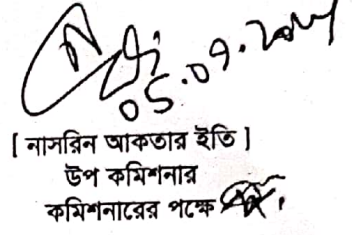 05.09.2024
[ নাসরিন আকতার ইতি ]
উপ কমিশনার
কমিশনারের পক্ষে